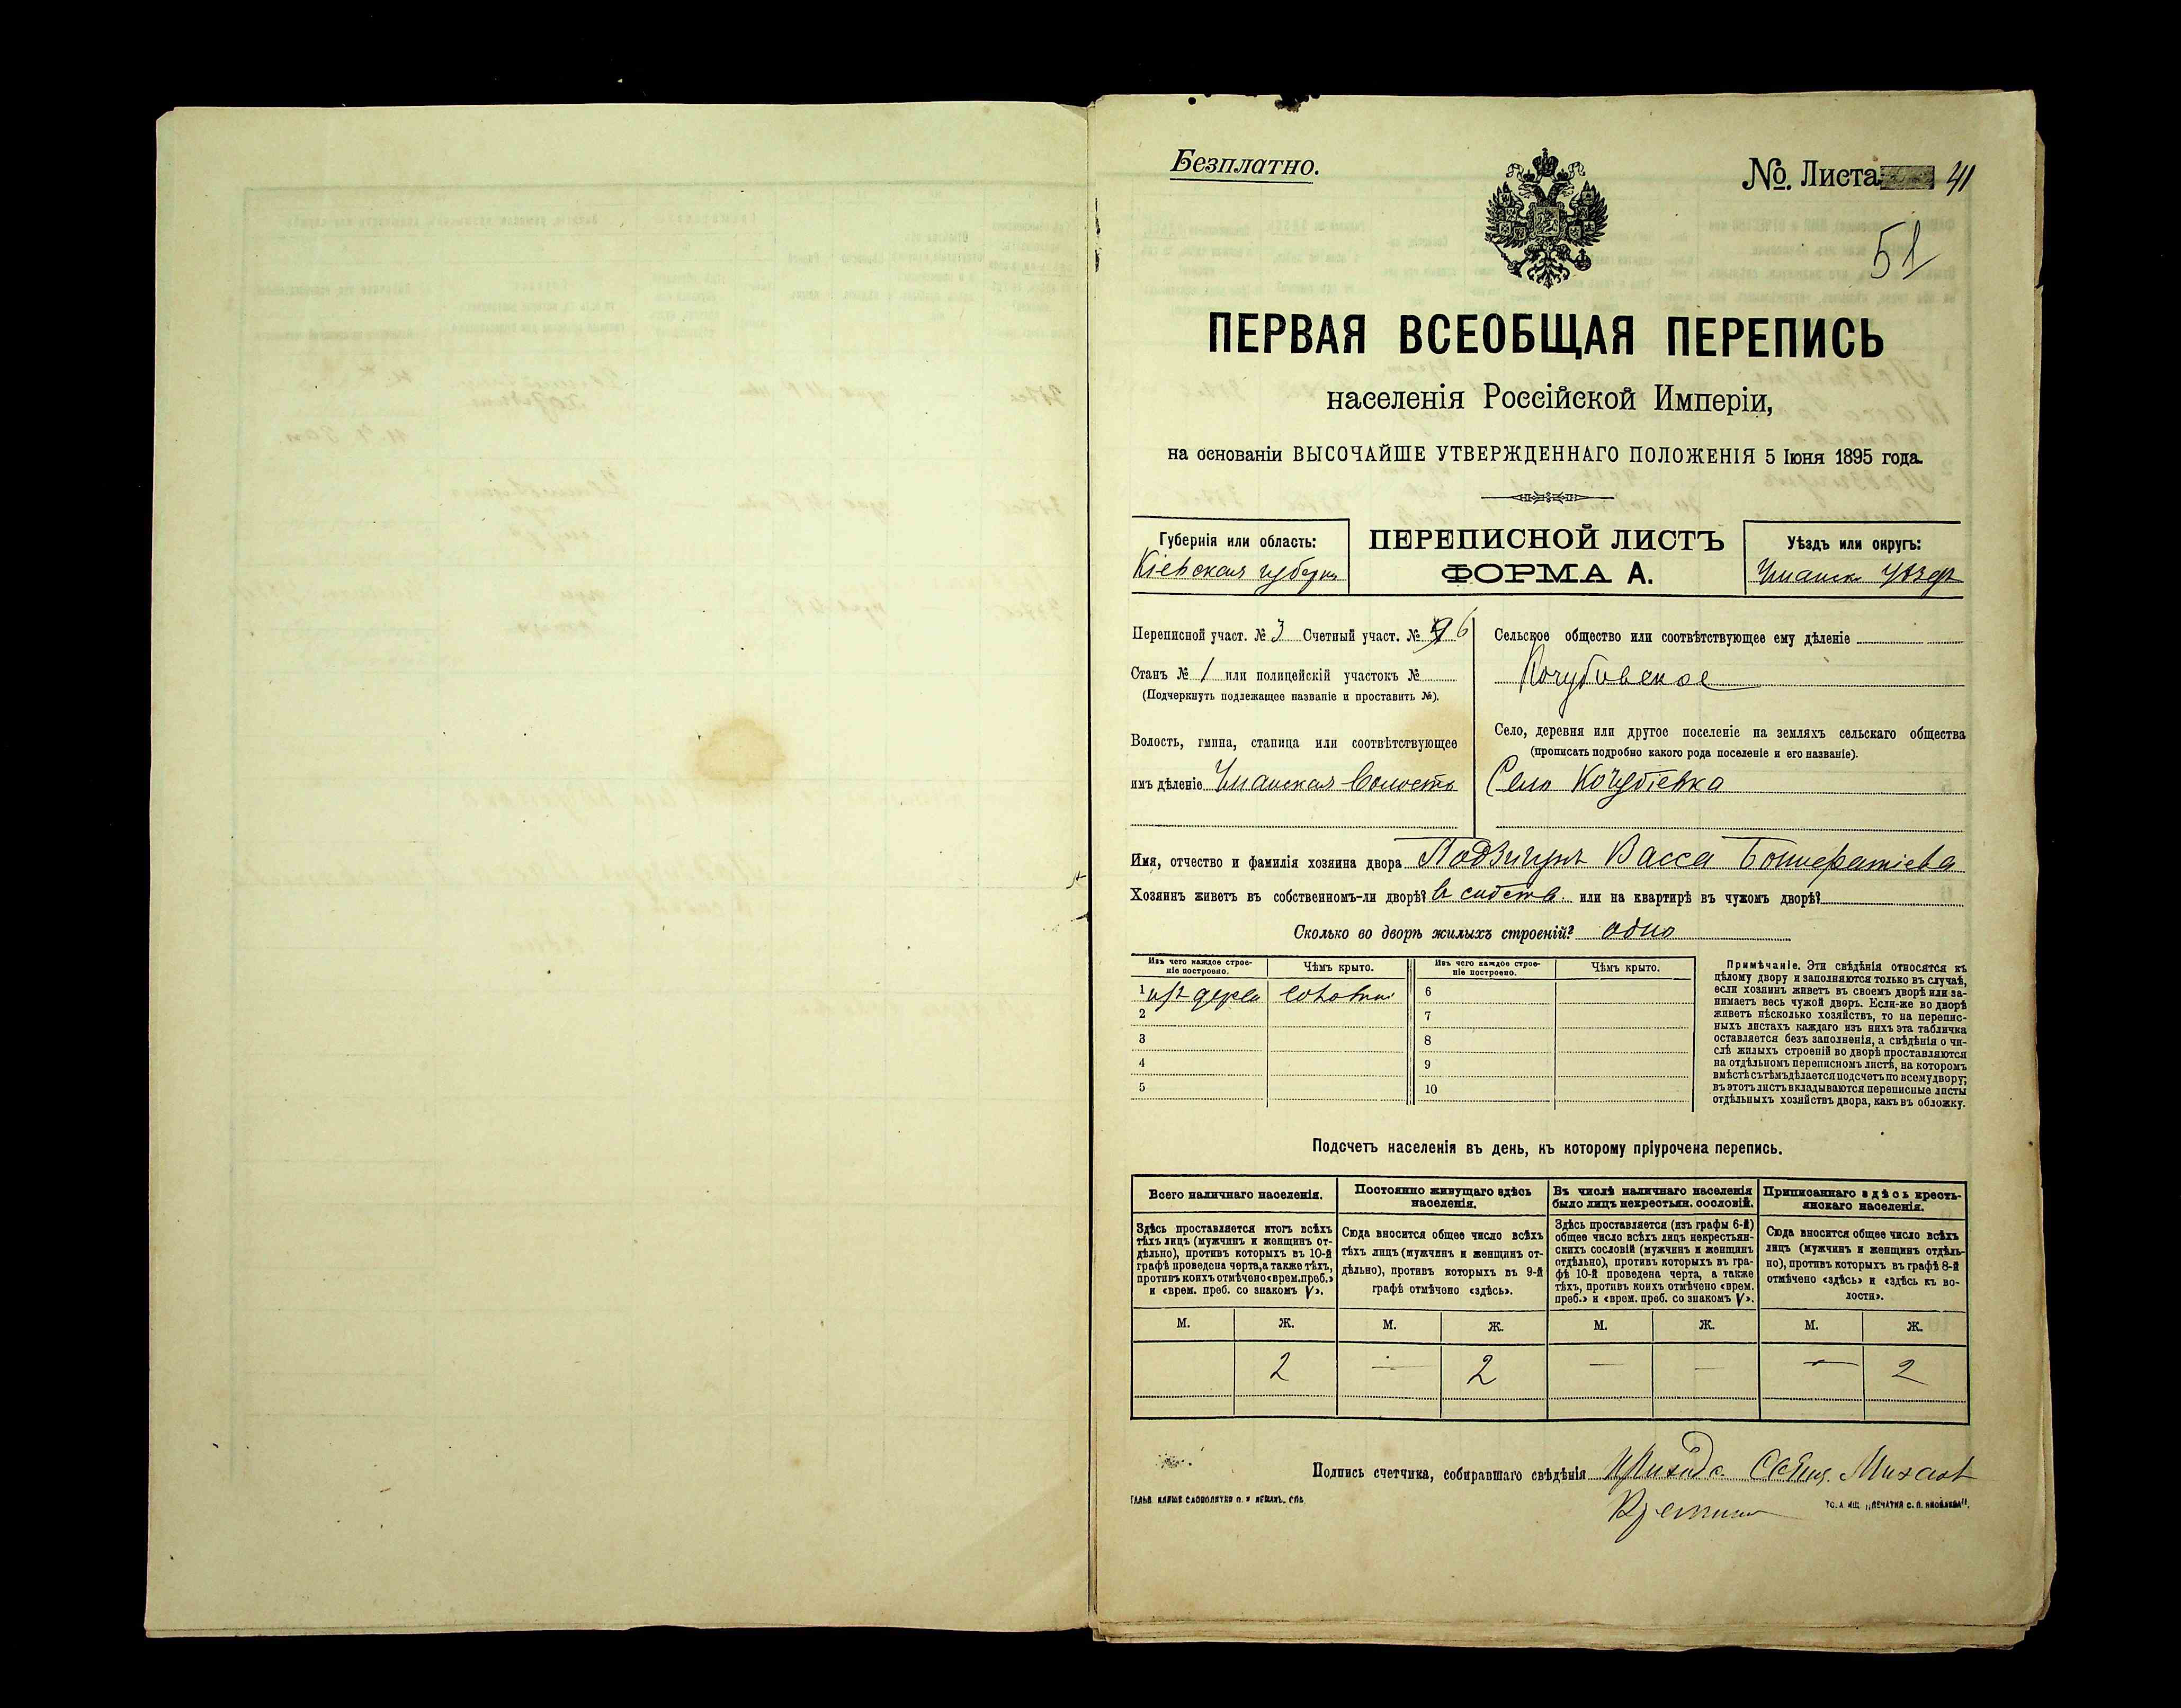 Безплатно.
№. Листа 41
51
ПЕРВАЯ ВСЕОБЩАЯ ПЕРЕПИСЬ
населенія Россійской Имперіи,
на основаніи ВЫСОЧАЙШЕ УТВЕРЖДЕННАГО ПОЛОЖЕНІЯ 5 Іюня 1895 года.
Губернія или область:
Кіевская губерня
ПЕРЕПИСНОЙ ЛИСТЪ
ФОРМА А.
Уѣздъ или округъ:
Уманск уѣздъ
Переписной участ. № 3 Счетный участ. № 6
Станъ № 1 или полицейскій участокъ №
(Подчеркнуть подлежащее названіе и проставить №).
Волость, гмина, станица или соотвѣтствующее
имъ дѣленіе Уманская Волость
Сельское общество или соотвѣтствующее ему дѣленіе
Кочубивское
Село, деревня или другое поселеніе на земляхъ сельскаго общества
(прописать подробно какого рода поселеніе и его названіе).
Село Кочубіевка
Имя, отчество и фамилія хозяина двора Подзигунъ Васса
Хозяинъ живетъ въ собственномъ-ли дворѣ? в собств. или на квартирѣ въ чужомъ дворѣ?
Сколько во дворѣ жилыхъ строеній? одно
Изъ чего каждое строе-
ніе построено.
Чѣмъ крыто.
Изъ чего каждое строе-
ніе построено.
Чѣмъ крыто.
1 изъ дерева
2
3
4
5
6
7
8
9
10
Примѣчаніе. Эти свѣдѣнія относятся къ
цѣлому двору и заполняются только въ случаѣ,
если хозяинъ живетъ въ своемъ дворѣ или за-
нимаетъ весь чужой дворъ. Если-же во дворѣ
живетъ нѣсколько хозяйствъ, то на перепис-
ныхъ листахъ каждаго изъ нихъ эта табличка
оставляется безъ заполненія, а свѣдѣнія о чи-
слѣ жилыхъ строеній во дворѣ проставляются
на отдѣльномъ переписномъ листѣ, на которомъ
вмѣстѣ съ тѣмъ дѣлается подсчетъ по всему двору;
въ этотъ листъ вкладываются переписные листы
отдѣльныхъ хозяйствъ двора, какъ въ обложку.
Подсчетъ населенія въ день, къ которому пріурочена перепись.
Всего наличнаго населенія.
Здѣсь проставляется итогъ всѣхъ
тѣхъ лицъ (мужчинъ и женщинъ от-
дѣльно), противъ которыхъ въ 10-й
графѣ проведена черта, а также тѣхъ,
противъ коихъ отмѣчено «врем. преб.»
и «врем. преб. со знакомъ V».
Постоянно живущаго здѣсь
населенія.
Сюда вносится общее число всѣхъ
тѣхъ лицъ (мужчинъ и женщинъ от-
дѣльно), противъ которыхъ въ 9-й
графѣ отмѣчено «здѣсь».
Въ числѣ наличнаго населенія
было лицъ некрестьян. сословій.
Здѣсь проставляется (изъ графы 6-й)
общее число всѣхъ лицъ некрестьян-
скихъ сословій (мужчинъ и женщинъ
отдѣльно), противъ которыхъ въ гра-
фѣ 10-й проведена черта, а также
тѣхъ, противъ коихъ отмѣчено «врем.
преб.» и «врем. преб. со знакомъ V».
Приписаннаго здѣсь кресть-
янскаго населенія.
Сюда вносится общее число всѣхъ
лицъ (мужчинъ и женщинъ отдѣль-
но), противъ которыхъ въ графѣ 8-й
отмѣчено «здѣсь» и «здѣсь къ во-
лости».
М. Ж. М. Ж. М. Ж. М. Ж.
2 — 2 — — — 2
Подпись счетчика, собиравшаго свѣдѣнія